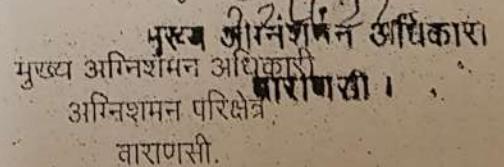 मुख्य अग्निशमन अधिकारी
मुख्य अग्निशमन अधिकारी
वाराणसी ।
अग्निशमन परिक्षेत्र,
वाराणसी.